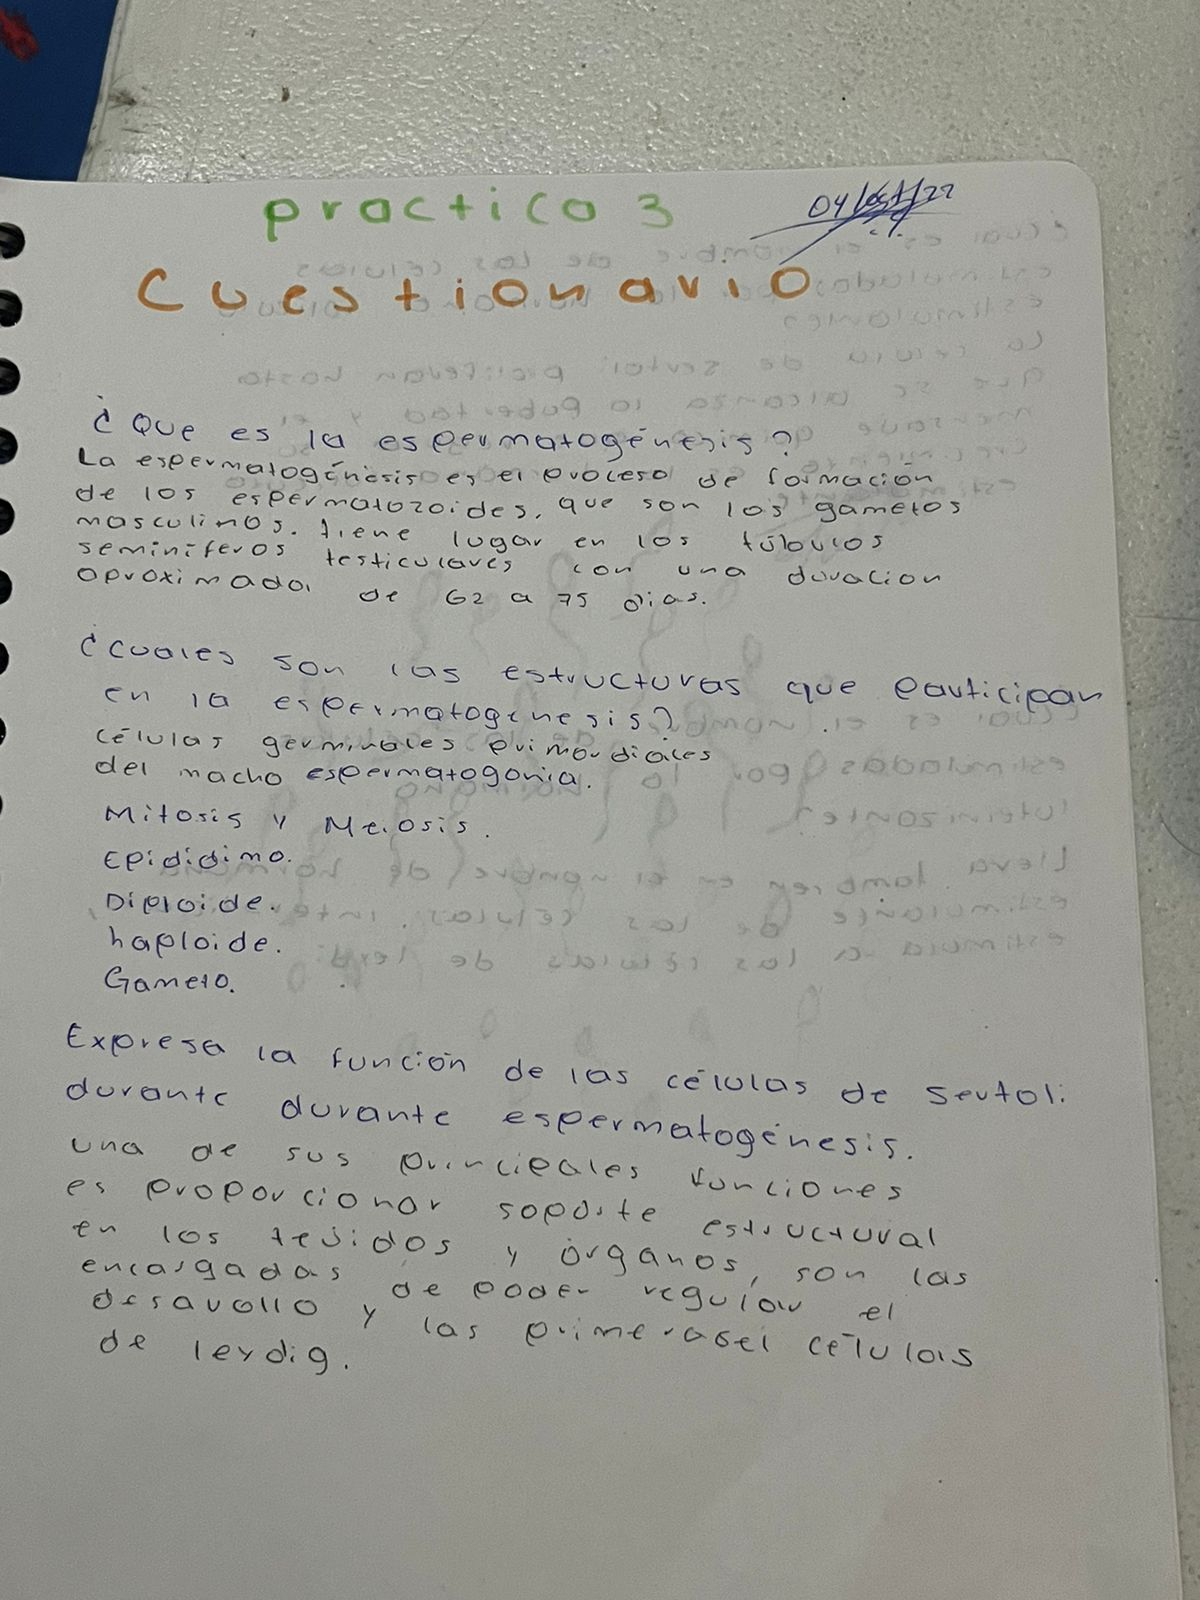 practico 3
Cuestionario
¿Que es la espermatogénesis?
La espermatogénesis es el proceso de formación
de los espermatozoides, que son los gametos
masculinos. tiene lugar en los túbulos
seminíferos testiculares con una duracion
aproximada, de 62 a 75 dias.
¿cuales son las estructuras que participan
en la espermatogenesis?
células germinales primordiales
del macho espermatogonia.
Mitosis y Meiosis.
Epididimo.
Diploide.
haploide.
Gameto.
Expresa la función de las células de Sertoli
durante durante espermatogénesis.
una de sus principales funciones
es proporcionar soporte estructural
en los tejidos y órganos, son las
encargadas de poder regular el
desarollo y las células
de leydig.